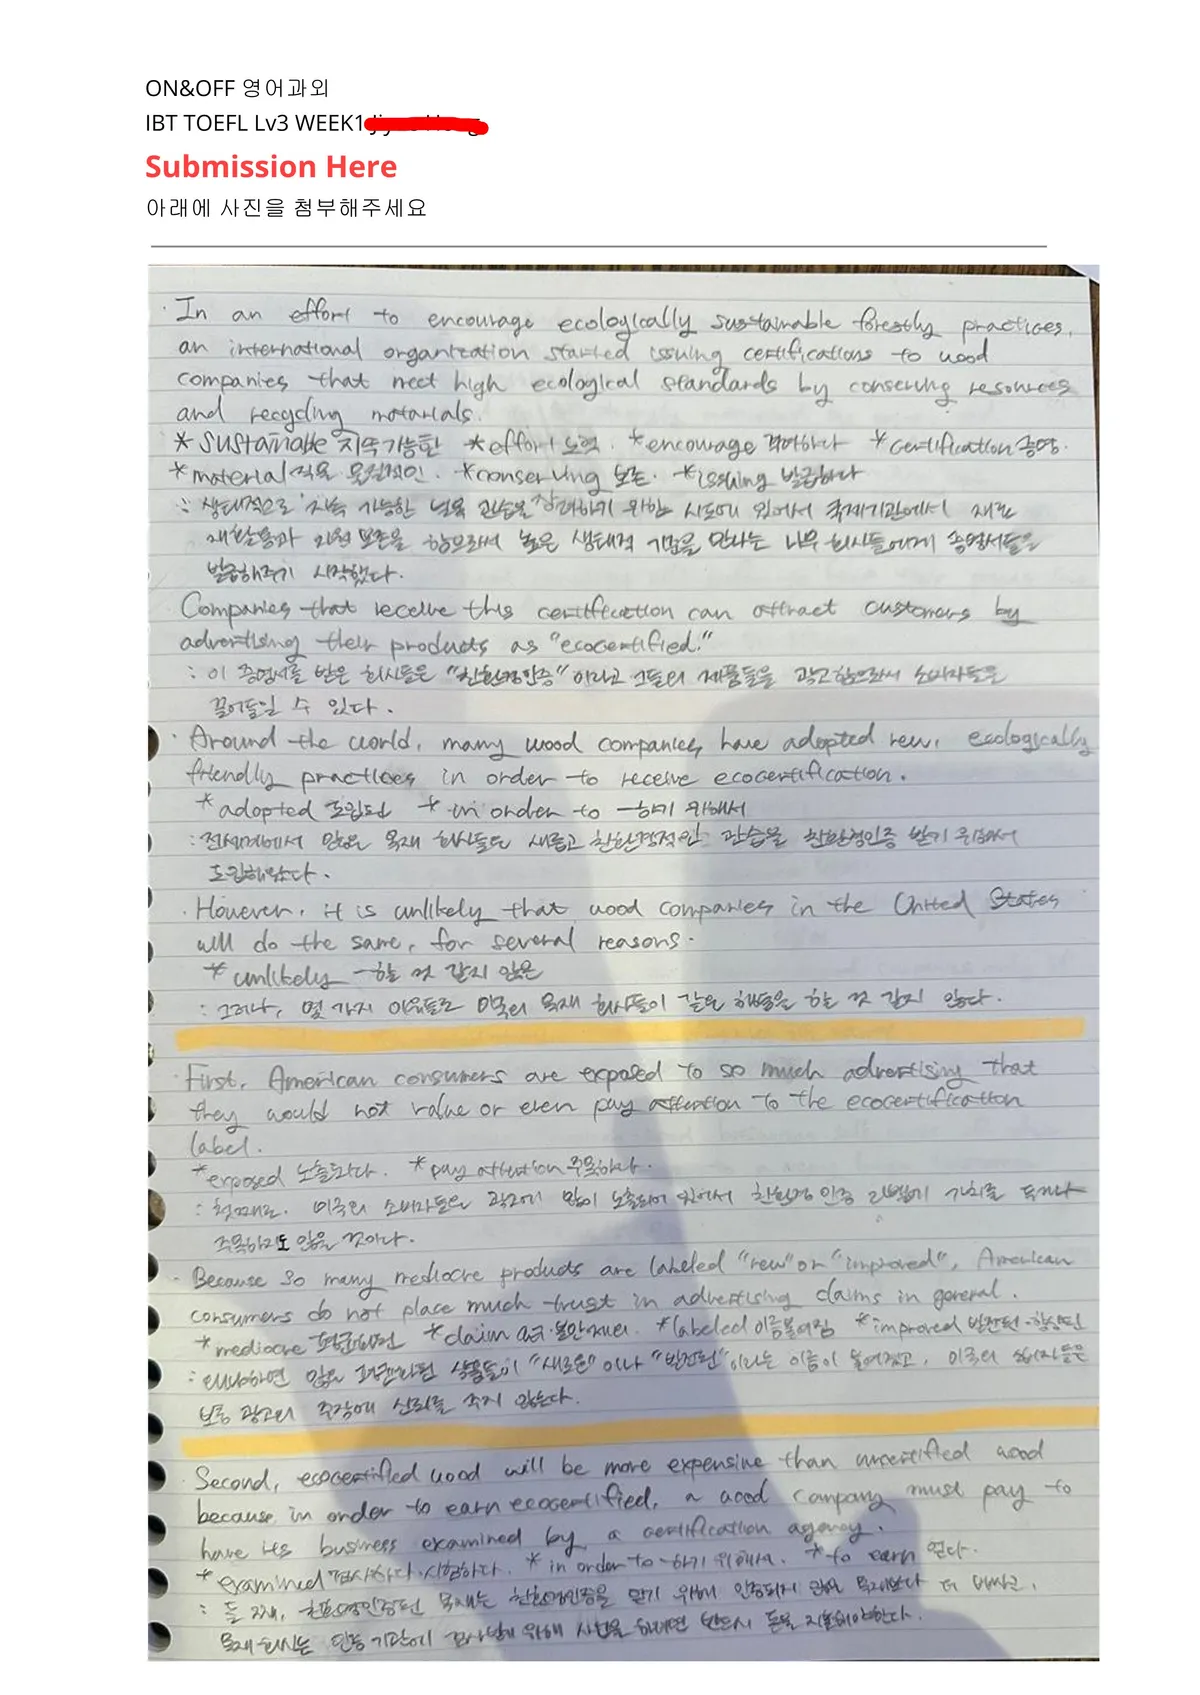 ON&OFF 영어과외
IBT TOEFL Lv3 WEEK1
Submission Here
아래에 사진을 첨부해주세요
· In an effort to encourage ecologically sustainable forestly practices,
an international organization started issuing certifications to wood
companies that meet high ecological standards by conserving resources
and recycling materials.
* sustainable 지속가능한 *effort 노력. *encourage 격려하다 *certification 증명.
*material 적용 물질적인. *conserving 보존. *issuing 발급하다
: 생태적으로 지속 가능한 벌목 관습을 장려하기 위한 시도에 있어서 국제기관에서 재료
재활용과 자원 보존을 함으로써 높은 생태적 기준을 만나는 나무 회사들에게 증명서들을
발급해주기 시작했다.
Companies that receive this certification can attract customers by
advertising their products as "ecocertified."
: 이 증명서를 받은 회사들은 "친환경인증"이라고 그들의 제품들을 광고함으로써 소비자들을
끌어들일 수 있다.
· Around the world, many wood companies have adopted new, ecologically
friendly practices in order to receive ecocertification.
*adopted 도입된 * in order to ~하기 위해서
: 전세계에서 많은 목재 회사들도 새롭고 친환경적인 관습을 친환경인증 받기 위해서
도입해왔다.
· However, it is unlikely that wood companies in the United States
will do the same, for several reasons.
* unlikely ~할 것 같지 않은
: 그러나, 몇 가지 이유들로 미국의 목재 회사들이 같은 행동을 할 것 같지 않다.
· First, American consumers are exposed to so much advertising that
they would not value or even pay attention to the ecocertification
label.
*exposed 노출되다. *pay attention 주목하다.
: 첫째로. 미국의 소비자들은 광고에 많이 노출되어 있어서 친환경 인증 라벨에 가치를 두거나
주목하지도 않을 것이다.
· Because so many mediocre products are labeled "new" or "improved", American
consumers do not place much trust in advertising claims in general.
*mediocre *claim *labeled 이름붙여짐 *improved 발전된·향상된
: 왜냐하면 많은 상품들이 "새로운"이나 "발전된"이라는 이름이 붙여졌고, 미국의 소비자들은
보통 광고의 주장에 신뢰를 주지 않는다.
· Second, ecocertified wood will be more expensive than uncertified wood
because in order to earn ecocertified, a wood company must pay to
have its business examined by a certification agency.
* examined 검사하다·시험하다. * in order to ~하기 위해서. * to earn 얻다.
: 둘 째, 친환경인증된 목재는 친환경인증을 얻기 위해 인증되지 않은 목재보다 더 비싸고,
목재 회사는 인증 기관에 검사받기 위해 사업을 하려면 반드시 돈을 지불해야한다.